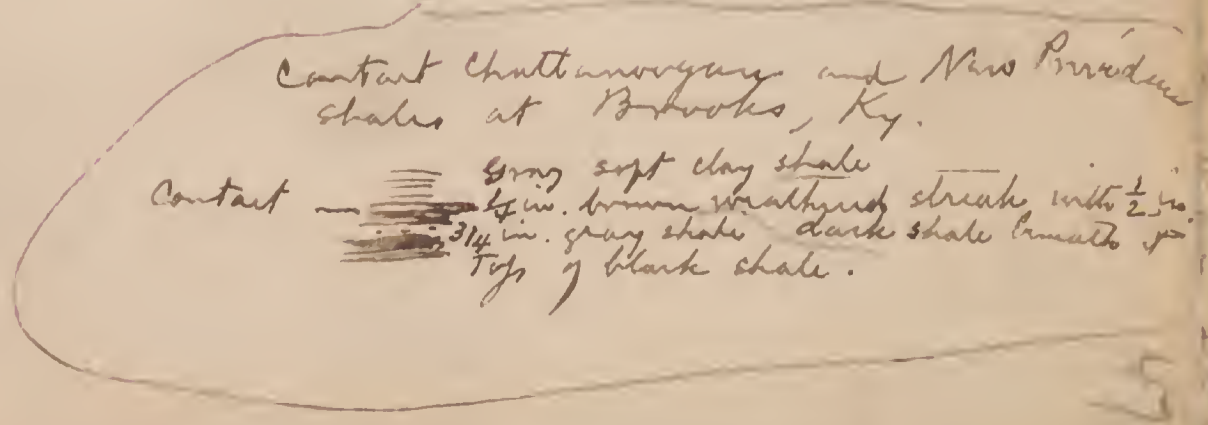 Contact Chattanoogan and New Providence
shales at Brooks, Ky.
Gray soft clay shale
Contact — 1/4 in. brown weathered streak with 1/2 in.
3/4 in. gray shale dark shale beneath it
Top of black shale.
5